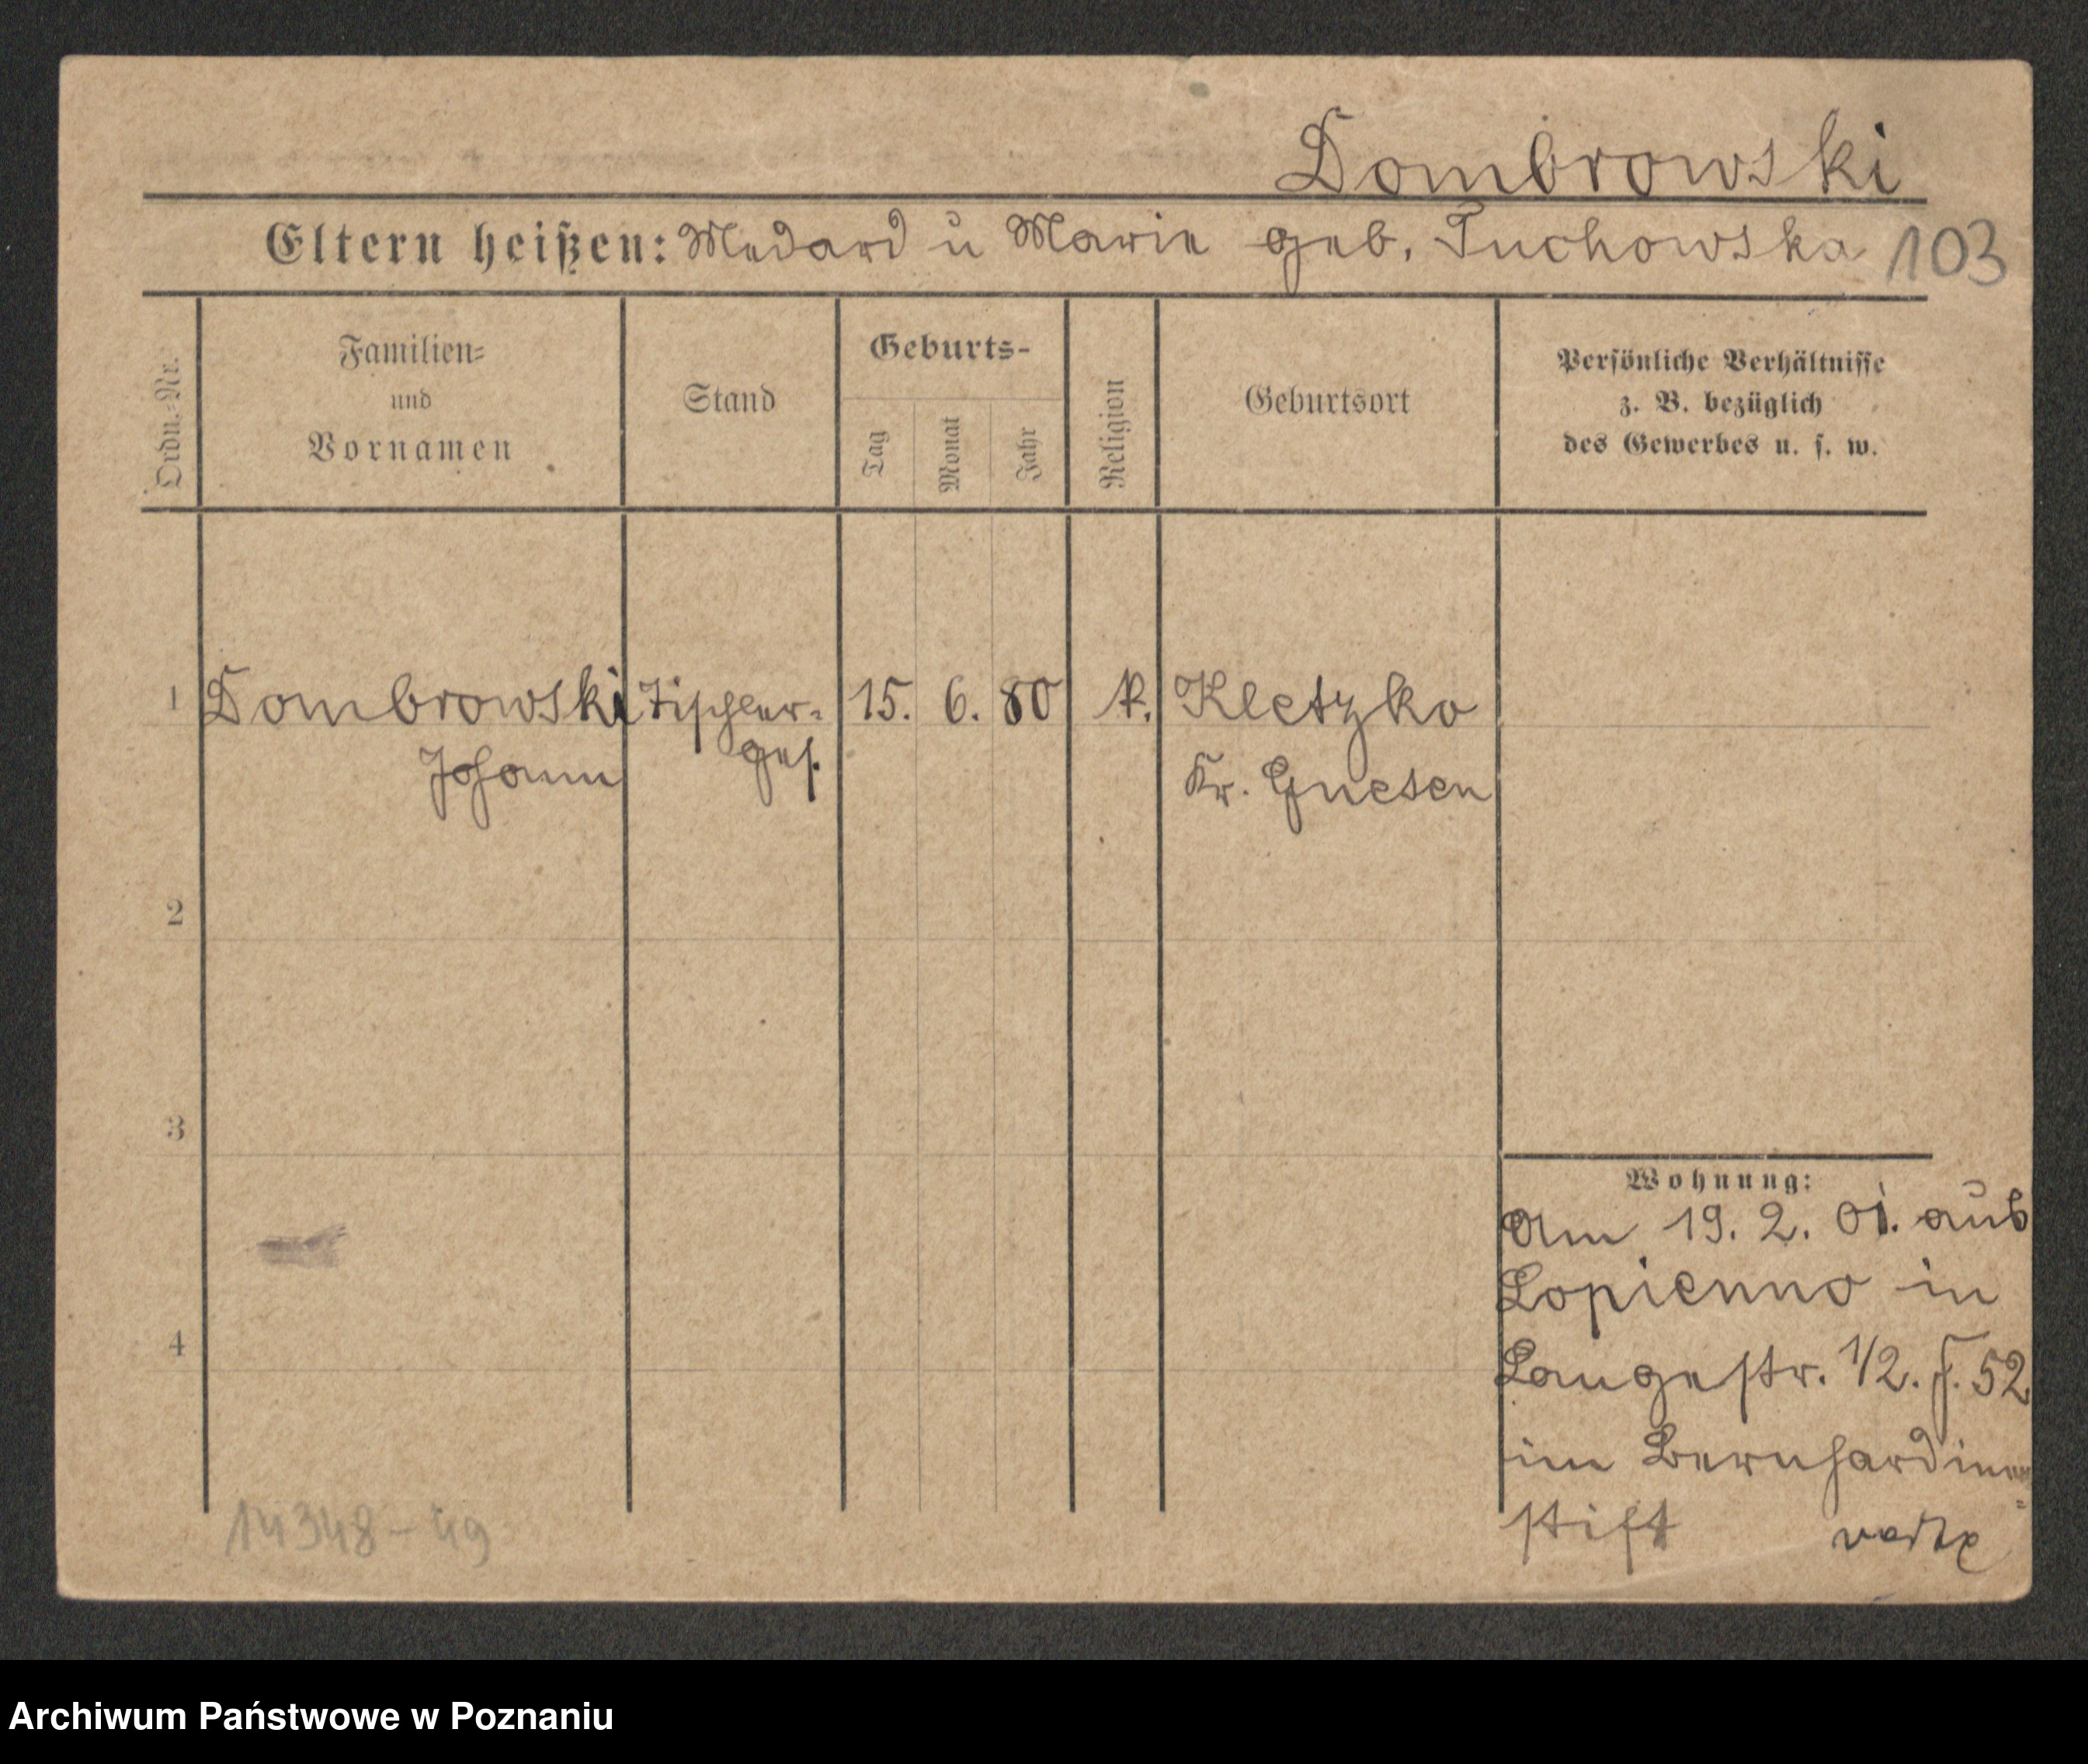 Dombrowski
Eltern heißen: Medard u Marie geb. Tuchowska 103
Ordn.-Nr.
Familien-
und
Vornamen
Stand
Geburts-
Tag
Monat
Jahr
Religion
Geburtsort
Persönliche Verhältnisse
z. B. bezüglich
des Gewerbes u. s. w.
1 Dombrowski Tischler- 15. 6. 80 k. Kletzko
Johann ges. Kr. Gnesen
2
3
4
Wohnung:
Am 19. 2. 01. aus
Lopienno in
Langestr. 1/2. f. 52
im Bernhardinen-
stift
14348-49
Archiwum Państwowe w Poznaniu